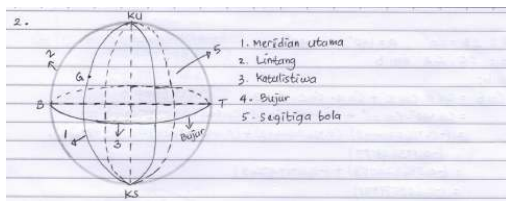 2.
KU
2
5
G
B
T
1
3
Bujur
KS
1. Meridian utama
2. Lintang
3. Katulistiwa
4. Bujur
5. Segitiga bola